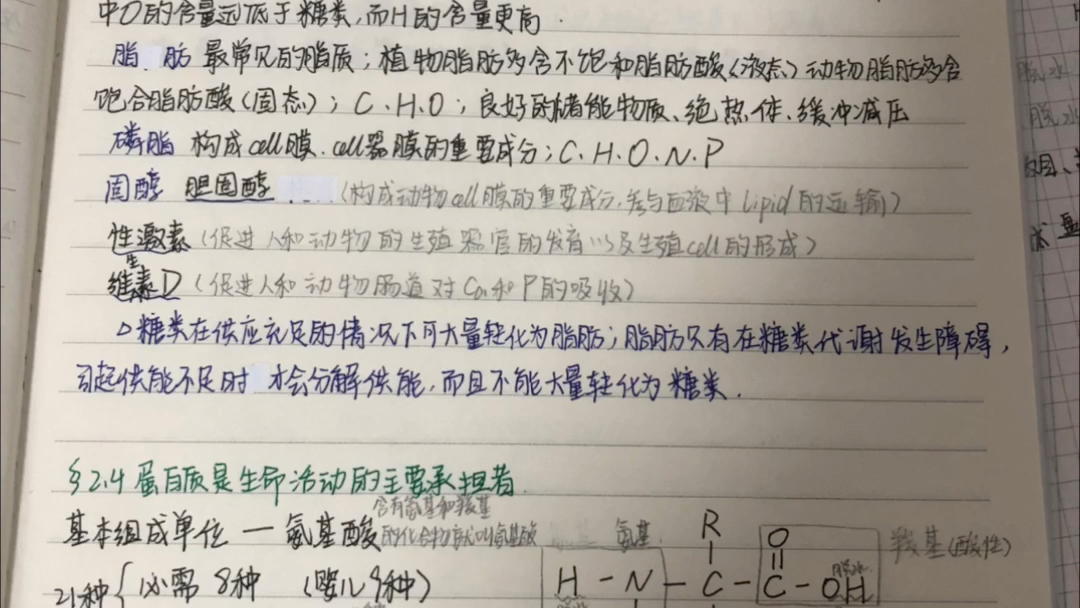 中O的含量远低于糖类,而H的含量更高.
脂肪 最常见的脂质;植物脂肪多含不饱和脂肪酸(液态)动物脂肪多含
饱合脂肪酸(固态);C.H.O;良好的储能物质、绝热体、缓冲减压
磷脂 构成cell膜.cell器膜的重要成分;C.H.O.N.P
固醇 胆固醇 (构成动物cell膜的重要成分,参与血液中Lipid的运输)
性激素(促进人和动物的生殖器官的发育以及生殖cell的形成)
维生素D(促进人和动物肠道对Ca和P的吸收)
△糖类在供应充足的情况下可大量转化为脂肪;脂肪只有在糖类代谢发生障碍,
引起供能不足时 才会分解供能,而且不能大量转化为糖类.
§2.4 蛋白质是生命活动的主要承担者
含有氨基和羧基
基本组成单位—氨基酸 的化合物就叫氨基酸 氨基 R O 羧基(酸性)
21种{必需8种 (婴儿9种) H-N-C-C-OH
脱水
脱水